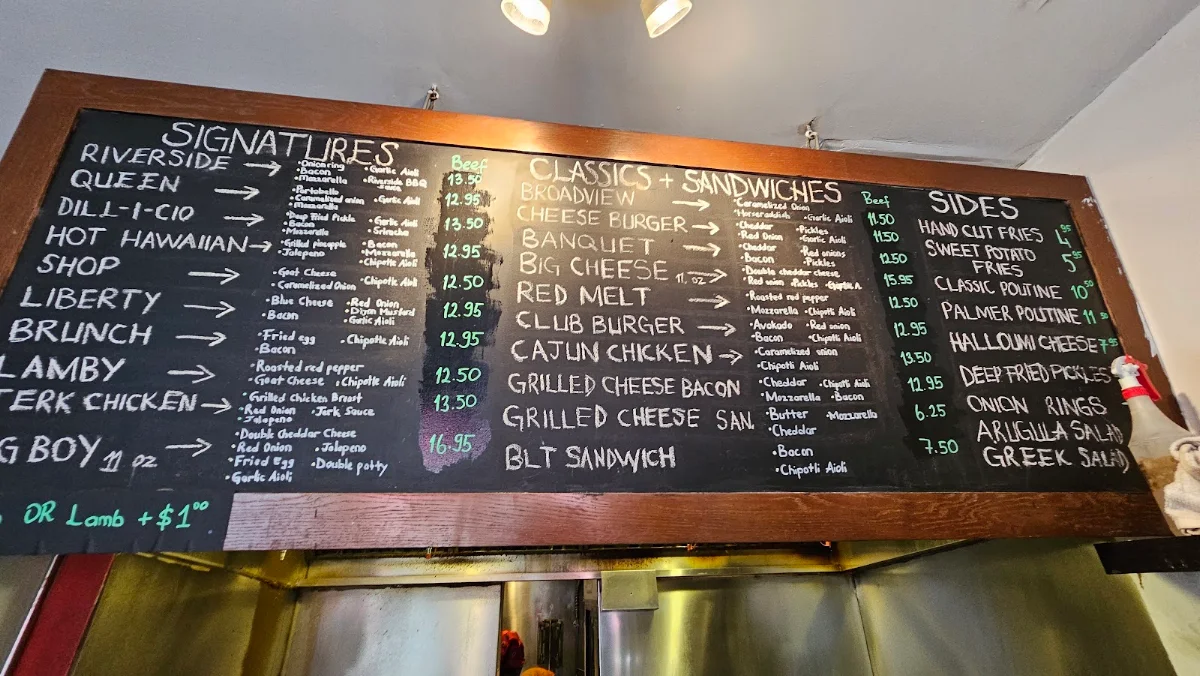 SIGNATURES
Beef
RIVERSIDE → •Onion ring •Garlic Aioli
•Bacon •Riverside BBQ
•Mozzarella Sauce 13.50
QUEEN → •Portobello
•Caramelized onion •Garlic Aioli
•Mozzarella 12.95
DILL-I-CIO → •Deep Fried Pickle •Garlic Aioli
•Bacon •Sriracha
•Mozzarella 13.50
HOT HAWAIIAN → •Grilled pineapple •Bacon
•Jalapeno •Mozzarella
•Chipotle Aioli 12.95
SHOP → •Goat Cheese •Chipotle Aioli
•Caramelized Onion 12.50
LIBERTY → •Blue Cheese •Red Onion
•Bacon •Dijon Mustard
•Garlic Aioli 12.95
BRUNCH → •Fried egg •Chipotle Aioli
•Bacon 12.95
LAMBY → •Roasted red pepper
•Goat Cheese •Chipotle Aioli 12.50
ERK CHICKEN → •Grilled Chicken Breast
•Red Onion •Jerk Sauce
•Jalapeno 13.50
G BOY 11 oz → •Double Cheddar Cheese
•Red Onion •Jalapeno
•Fried Egg •Double patty
•Garlic Aioli 16.95
OR Lamb +$1.00
CLASSICS + SANDWICHES
Beef
BROADVIEW → •Caramelized Onion
•Horseraddish •Garlic Aioli 11.50
CHEESE BURGER → •Cheddar •Pickles
•Red Onion •Garlic Aioli 11.50
BANQUET → •Cheddar •Red onions
•Bacon •Pickles 12.50
BIG CHEESE 11 oz → •Double cheddar cheese
•Red onion •Pickles •Chipotle A. 15.95
RED MELT → •Roasted red pepper
•Mozzarella •Chipotle Aioli 12.50
CLUB BURGER → •Avokado •Red onion
•Bacon •Chipotle Aioli 12.95
CAJUN CHICKEN → •Caramelized onion
•Chipotli Aioli 13.50
GRILLED CHEESE BACON •Cheddar •Chipotli Aioli
•Mozzarella •Bacon 12.95
GRILLED CHEESE SAN. •Butter •Mozzarella
•Cheddar 6.25
BLT SANDWICH •Bacon
•Chipotli Aioli 7.50
SIDES
HAND CUT FRIES 4.95
SWEET POTATO
FRIES 5.95
CLASSIC POUTINE 10.50
PALMER POUTINE 11.50
HALLOUMI CHEESE 7.95
DEEP FRIED PICKLES
ONION RINGS
ARUGULA SALAD
GREEK SALAD